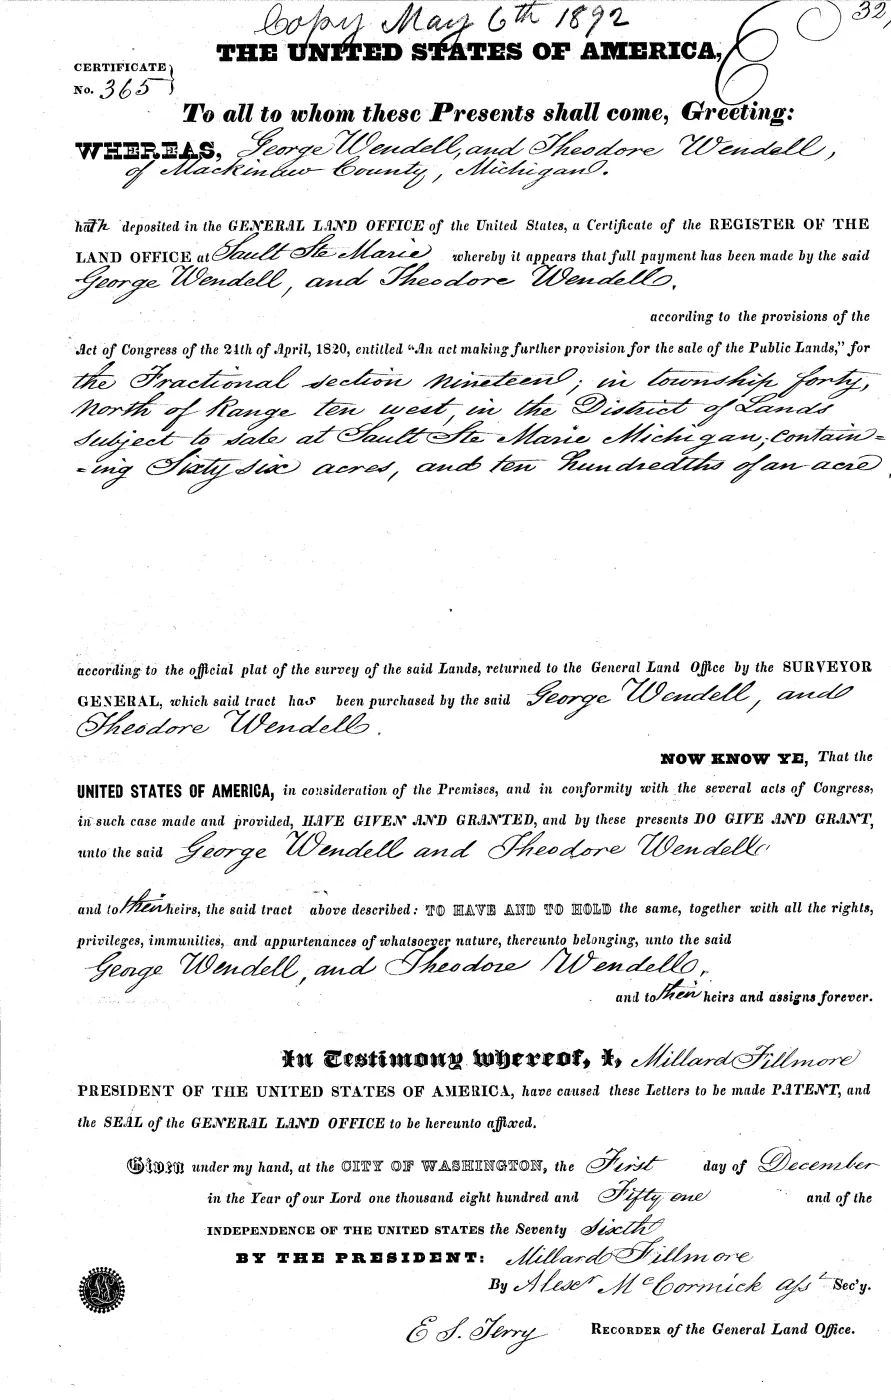 Copy May 6th 1892
32,
THE UNITED STATES OF AMERICA,
CERTIFICATE
No. 365
To all to whom these Presents shall come, Greeting:
WHEREAS, George Wendell, and Theodore Wendell,
of Mackinaw County, Michigan.
hath deposited in the GENERAL LAND OFFICE of the United States, a Certificate of the REGISTER OF THE
LAND OFFICE at Sault Ste Marie whereby it appears that full payment has been made by the said
George Wendell, and Theodore Wendell.
according to the provisions of the
Act of Congress of the 24th of April, 1820, entitled "An act making further provision for the sale of the Public Lands," for
the Fractional section nineteen; in township forty,
North of Range ten west, in the District of Lands
subject to sale at Sault Ste Marie Michigan, contain=
=ing Sixty six acres, and ten hundredths of an acre
according to the official plat of the survey of the said Lands, returned to the General Land Office by the SURVEYOR
GENERAL, which said tract has been purchased by the said George Wendell, and
Theodore Wendell.
NOW KNOW YE, That the
UNITED STATES OF AMERICA, in consideration of the Premises, and in conformity with the several acts of Congress,
in such case made and provided, HAVE GIVEN AND GRANTED, and by these presents DO GIVE AND GRANT,
unto the said George Wendell and Theodore Wendell
and to their heirs, the said tract above described: TO HAVE AND TO HOLD the same, together with all the rights,
privileges, immunities, and appurtenances of whatsoever nature, thereunto belonging, unto the said
George Wendell, and Theodore Wendell,
and to their heirs and assigns forever.
In Testimony whereof, I, Millard Fillmore
PRESIDENT OF THE UNITED STATES OF AMERICA, have caused these Letters to be made PATENT, and
the SEAL of the GENERAL LAND OFFICE to be hereunto affixed.
Given under my hand, at the CITY OF WASHINGTON, the First day of December
in the Year of our Lord one thousand eight hundred and Fifty one and of the
INDEPENDENCE OF THE UNITED STATES the Seventy Sixth
BY THE PRESIDENT: Millard Fillmore
By Alexr McCormick asst Sec'y.
E S. Terry RECORDER of the General Land Office.